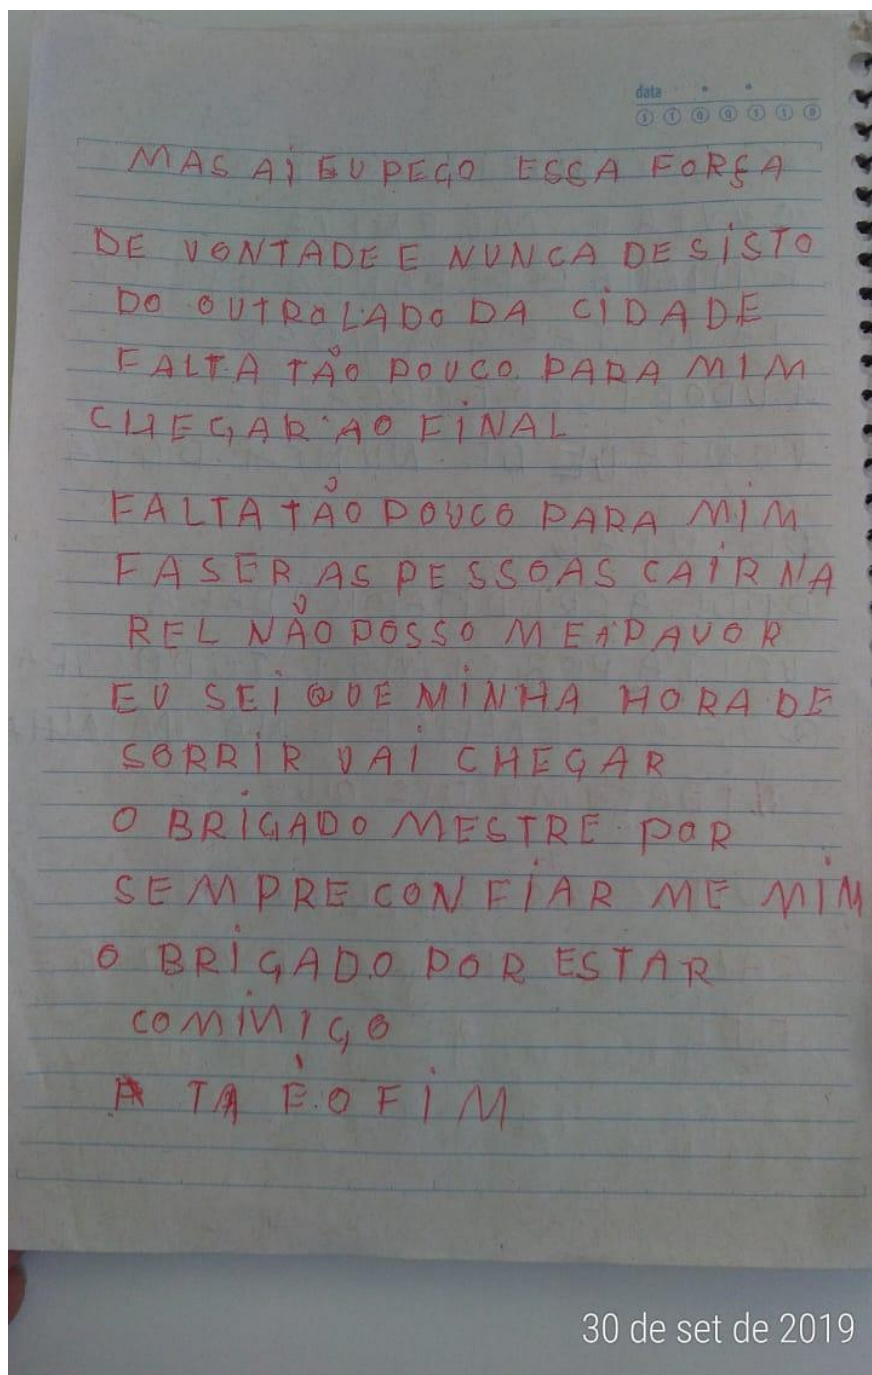 data
S T Q Q S S D
MAS AÍ EU PEGO ESSA FORÇA
DE VONTADE E NUNCA DESISTO
DO OUTRO LADO DA CIDADE
FALTA TÃO POUCO PARA MIM
CHEGAR AO FINAL
FALTA TÃO POUCO PARA MIM
FASER AS PESSOAS CAIR NA
REL NÃO POSSO ME APAVOR
EU SEI QUE MINHA HORA DE
SORRIR VAI CHEGAR
O BRIGADO MESTRE POR
SEMPRE CONFIAR ME MIM
O BRIGADO POR ESTAR
COMMIGO
A TA É O FIM
30 de set de 2019